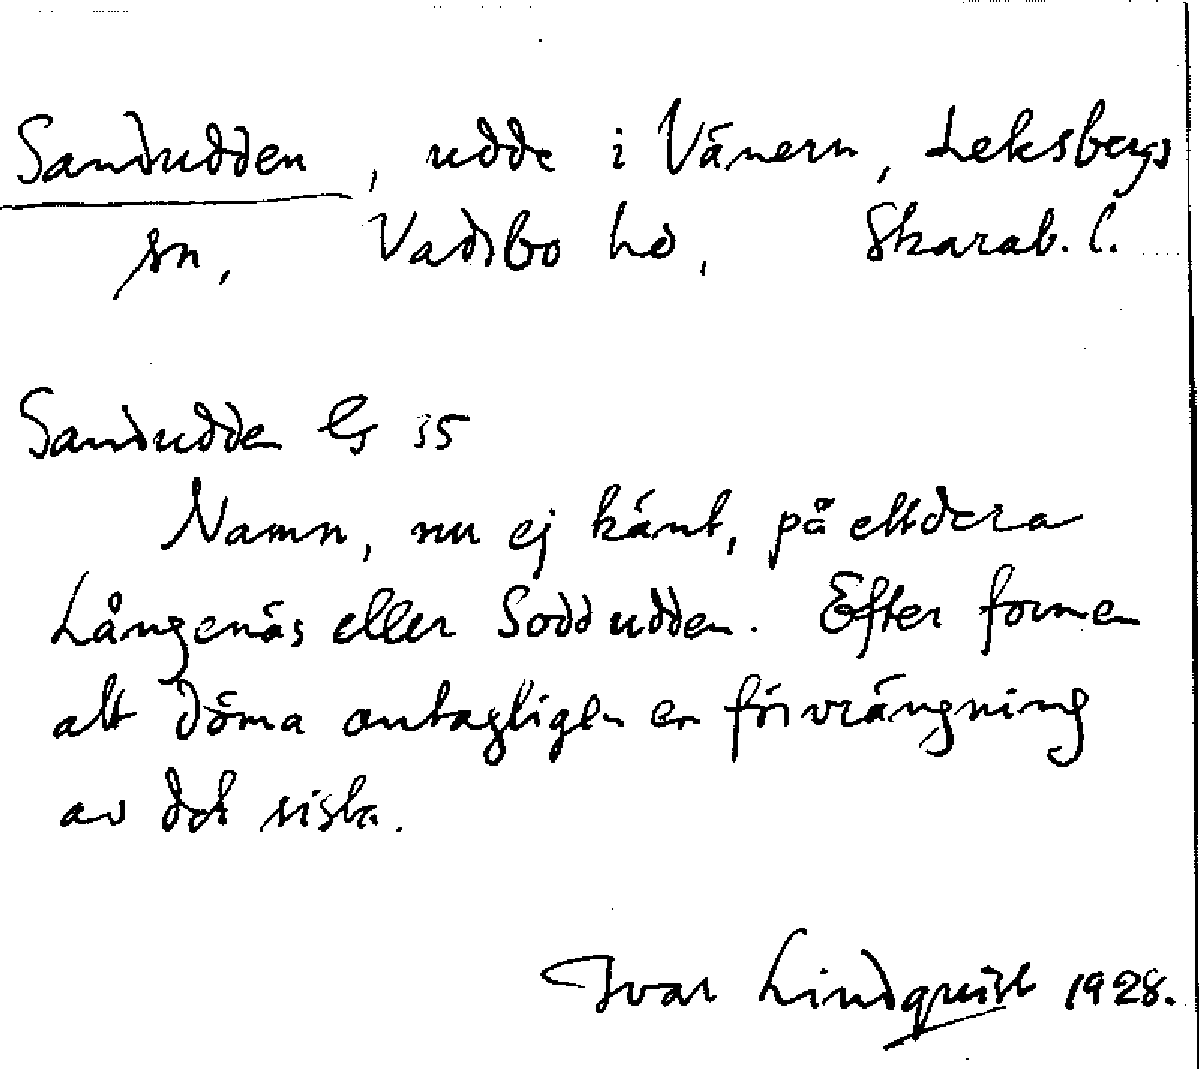 Sandudden, udde i Vänern, Leksbergs
sn, Vadsbo hd, Skarab. l.
Sandudden GS 35
Namn, nu ej känt, på ettdera
Långenäs eller Soddudden. Efter formen
att döma antagligen en förvrängning
av det sista.
Ivar Lindquist 1928.